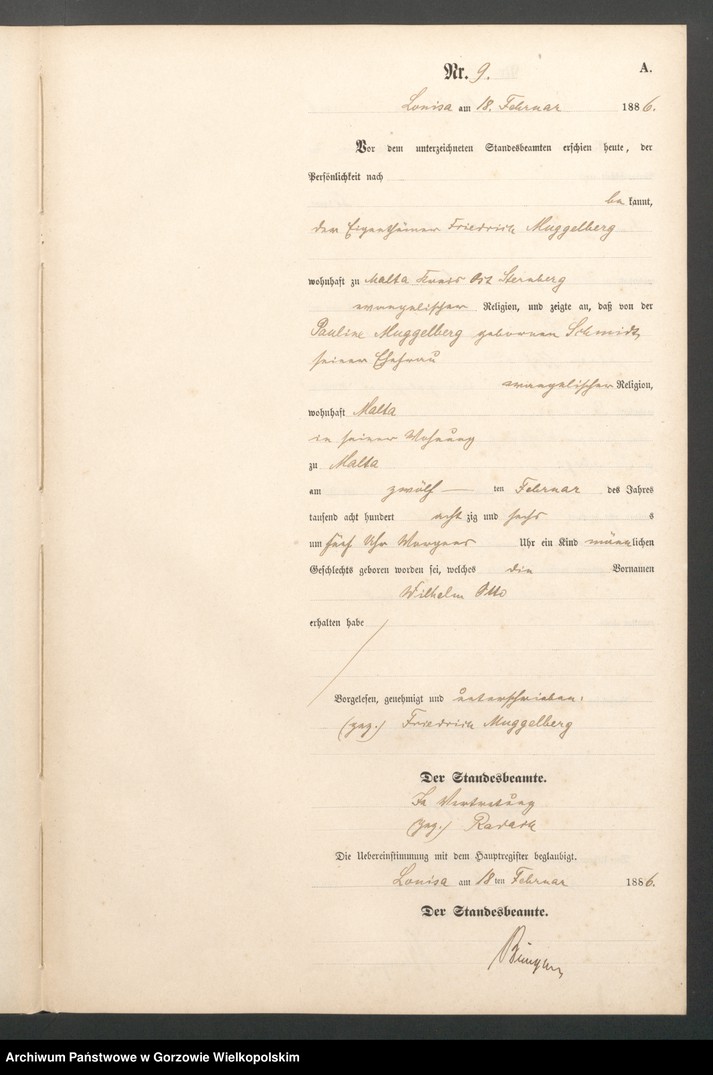 Nr. 9. A.
Louisa am 18. Februar 1886.
Vor dem unterzeichneten Standesbeamten erschien heute, der
Persönlichkeit nach
be kannt,
der Eigenthümer Friedrich Muggelberg
wohnhaft zu Malta Kreis Ost Sternberg
evangelischer Religion, und zeigte an, daß von der
Pauline Muggelberg gebornen Schmidt,
seiner Ehefrau
evangelischer Religion,
wohnhaft Malta
in seiner Wohnung
zu Malta
am zwölf ten Februar des Jahres
tausend acht hundert acht zig und sechs s
um fünf Uhr Morgens Uhr ein Kind männlichen
Geschlechts geboren worden sei, welches die Vornamen
Wilhelm Otto
erhalten habe
Vorgelesen, genehmigt und unterschrieben.
(gez.) Friedrich Muggelberg
Der Standesbeamte.
In Vertretung
(gez.)
Die Uebereinstimmung mit dem Hauptregister beglaubigt.
Louisa am 18ten Februar 1886.
Der Standesbeamte.
Archiwum Państwowe w Gorzowie Wielkopolskim